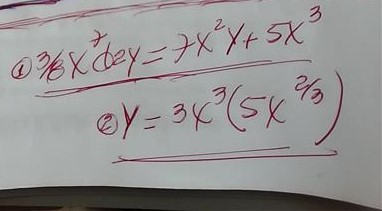 ① 3/8x⁷ 62y = 7x²y + 5x³
② y = 3x³(5x^2/3)